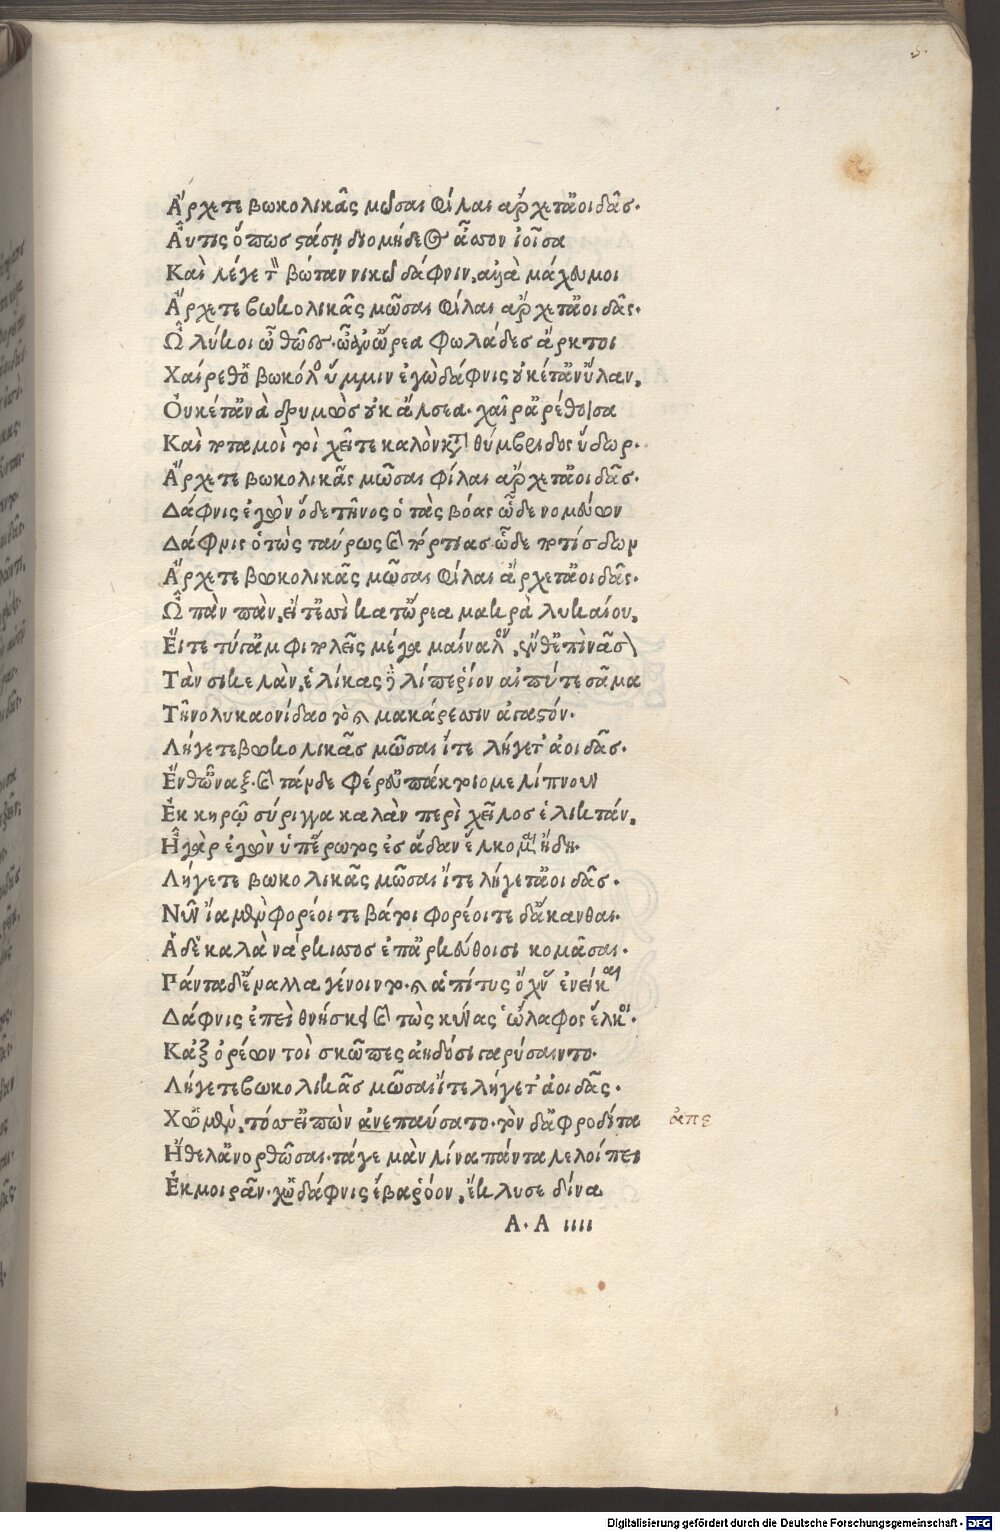 5.
Ἄρχετε βωκολικᾶς μῶσαι φίλαι ἄρχετ᾽ ἀοιδᾶς.
Αὖτις ὅπως στάσῃ διομήδεος ἆσσον ἰοῖσα
Καὶ λέγε τ̀ βώταν νικῶ δάφνιν, ἀλλὰ μάχευ μοι
Ἄρχετε βωκολικᾶς μῶσαι φίλαι ἄρχετ᾽ ἀοιδᾶς.
Ὦ λύκοι ὦ θῶες. ὦ ἀν᾽ ὤρεα φωλάδες ἄρκτοι
Χαίρεθ᾽ ὁ βωκόλος ὔμμιν ἐγὼ δάφνις οὐκέτ᾽ ἀν᾽ ὕλαν,
Οὐκέτ᾽ ἀνὰ δρυμὼς οὐκ ἄλσεα. χαῖρ᾽ ἀρέθοισα
Καὶ ποταμοὶ τοὶ χεῖτε καλὸν κατὰ θύμβριδος ὕδωρ.
Ἄρχετε βωκολικᾶς μῶσαι φίλαι ἄρχετ᾽ ἀοιδᾶς.
Δάφνις ἐγὼν ὅδε τῆνος ὁ τὰς βόας ὧδε νομεύων
Δάφνις ὁ τὼς ταύρως καὶ πόρτιας ὧδε ποτίσδων
Ἄρχετε βωκολικᾶς μῶσαι φίλαι ἄρχετ᾽ ἀοιδᾶς.
Ὦ πὰν πὰν, εἴτ᾽ ἐσσὶ κατ᾽ ὤρεα μακρὰ λυκαίου,
Εἴτε τύγ᾽ ἀμφιπολεῖς μέγα μαίναλον, ἔνθ᾽ ἐπὶ νᾶσον
Τὰν σικελὰν, ἑλίκας δὲ λίπε ῥίον αἰπύ τε σᾶμα
Τῆνο λυκαονίδαο τὸ καὶ μακάρεσσιν ἀγαστόν.
Λήγετε βωκολικᾶς μῶσαι ἴτε λήγετ᾽ ἀοιδᾶς.
Ἔνθ᾽ ὦναξ. καὶ τάνδε φέρευ πάκτοιο μελίπνουν
Ἐκ κηρῶ σύριγγα καλὰν περὶ χεῖλος ἑλικτάν,
Ἦ γὰρ ἐγὼν ὑπ᾽ ἔρωτος ἐς ᾅδαν ἕλκομαι ἤδη.
Λήγετε βωκολικᾶς μῶσαι ἴτε λήγετ᾽ ἀοιδᾶς.
Νῦν ἴα μὲν φορέοιτε βάτοι φορέοιτε δ᾽ ἄκανθαι.
Ἁ δὲ καλὰ νάρκισσος ἐπ᾽ ἀρκεύθοισι κομᾶσαι.
Πάντα δ᾽ ἔναλλα γένοιντο. καὶ ἁ πίτυς ὄχνας ἐνείκαι
Δάφνις ἐπεὶ θνήσκει καὶ τὼς κύνας ὥλαφος ἕλκοι.
Κἀξ ὀρέων τοὶ σκῶπες ἀηδόσι γαρύσαιντο.
Λήγετε βωκολικᾶς μῶσαι ἴτε λήγετ᾽ ἀοιδᾶς.
Χὠ μὲν, τόσσ᾽ εἰπὼν ἀνεπαύσατο. τὸν δ᾽ ἀφροδίτα ἀπε
Ἤθελ᾽ ἀνορθῶσαι. τάγε μὰν λίνα πάντα λελοίπει
Ἐκ μοιρᾶν. χὠ δάφνις ἔβα ῥόον, ἔκλυσε δίνα
Α. Α ιιιι
Digitalisierung gefördert durch die Deutsche Forschungsgemeinschaft - DFG